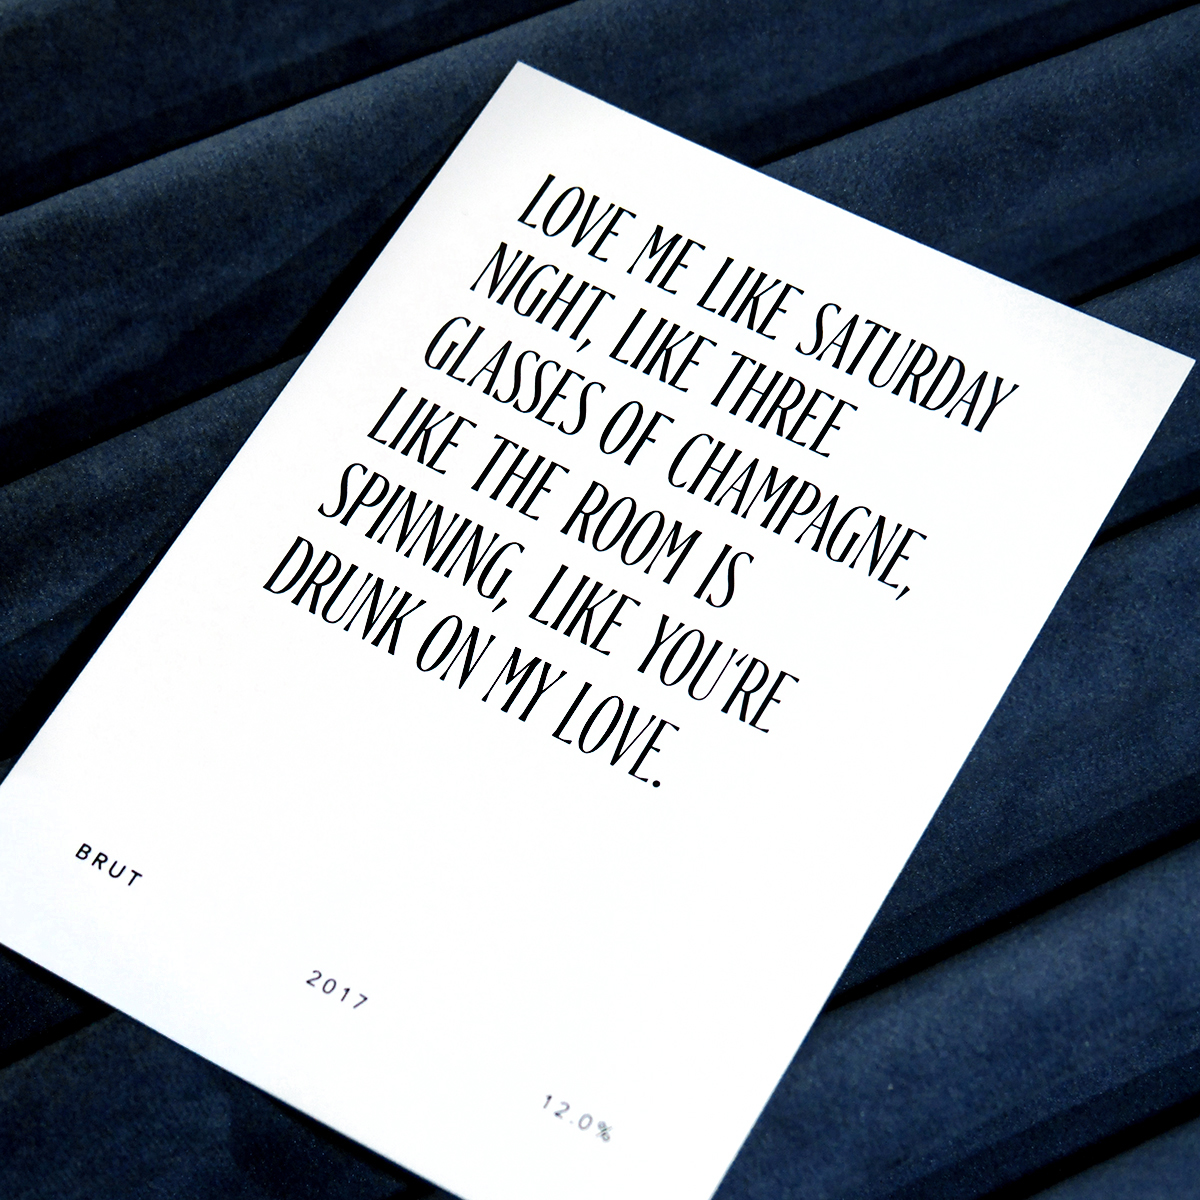 LOVE ME LIKE SATURDAY
NIGHT, LIKE THREE
GLASSES OF CHAMPAGNE,
LIKE THE ROOM IS
SPINNING, LIKE YOU‘RE
DRUNK ON MY LOVE.
BRUT
2017
12.0%